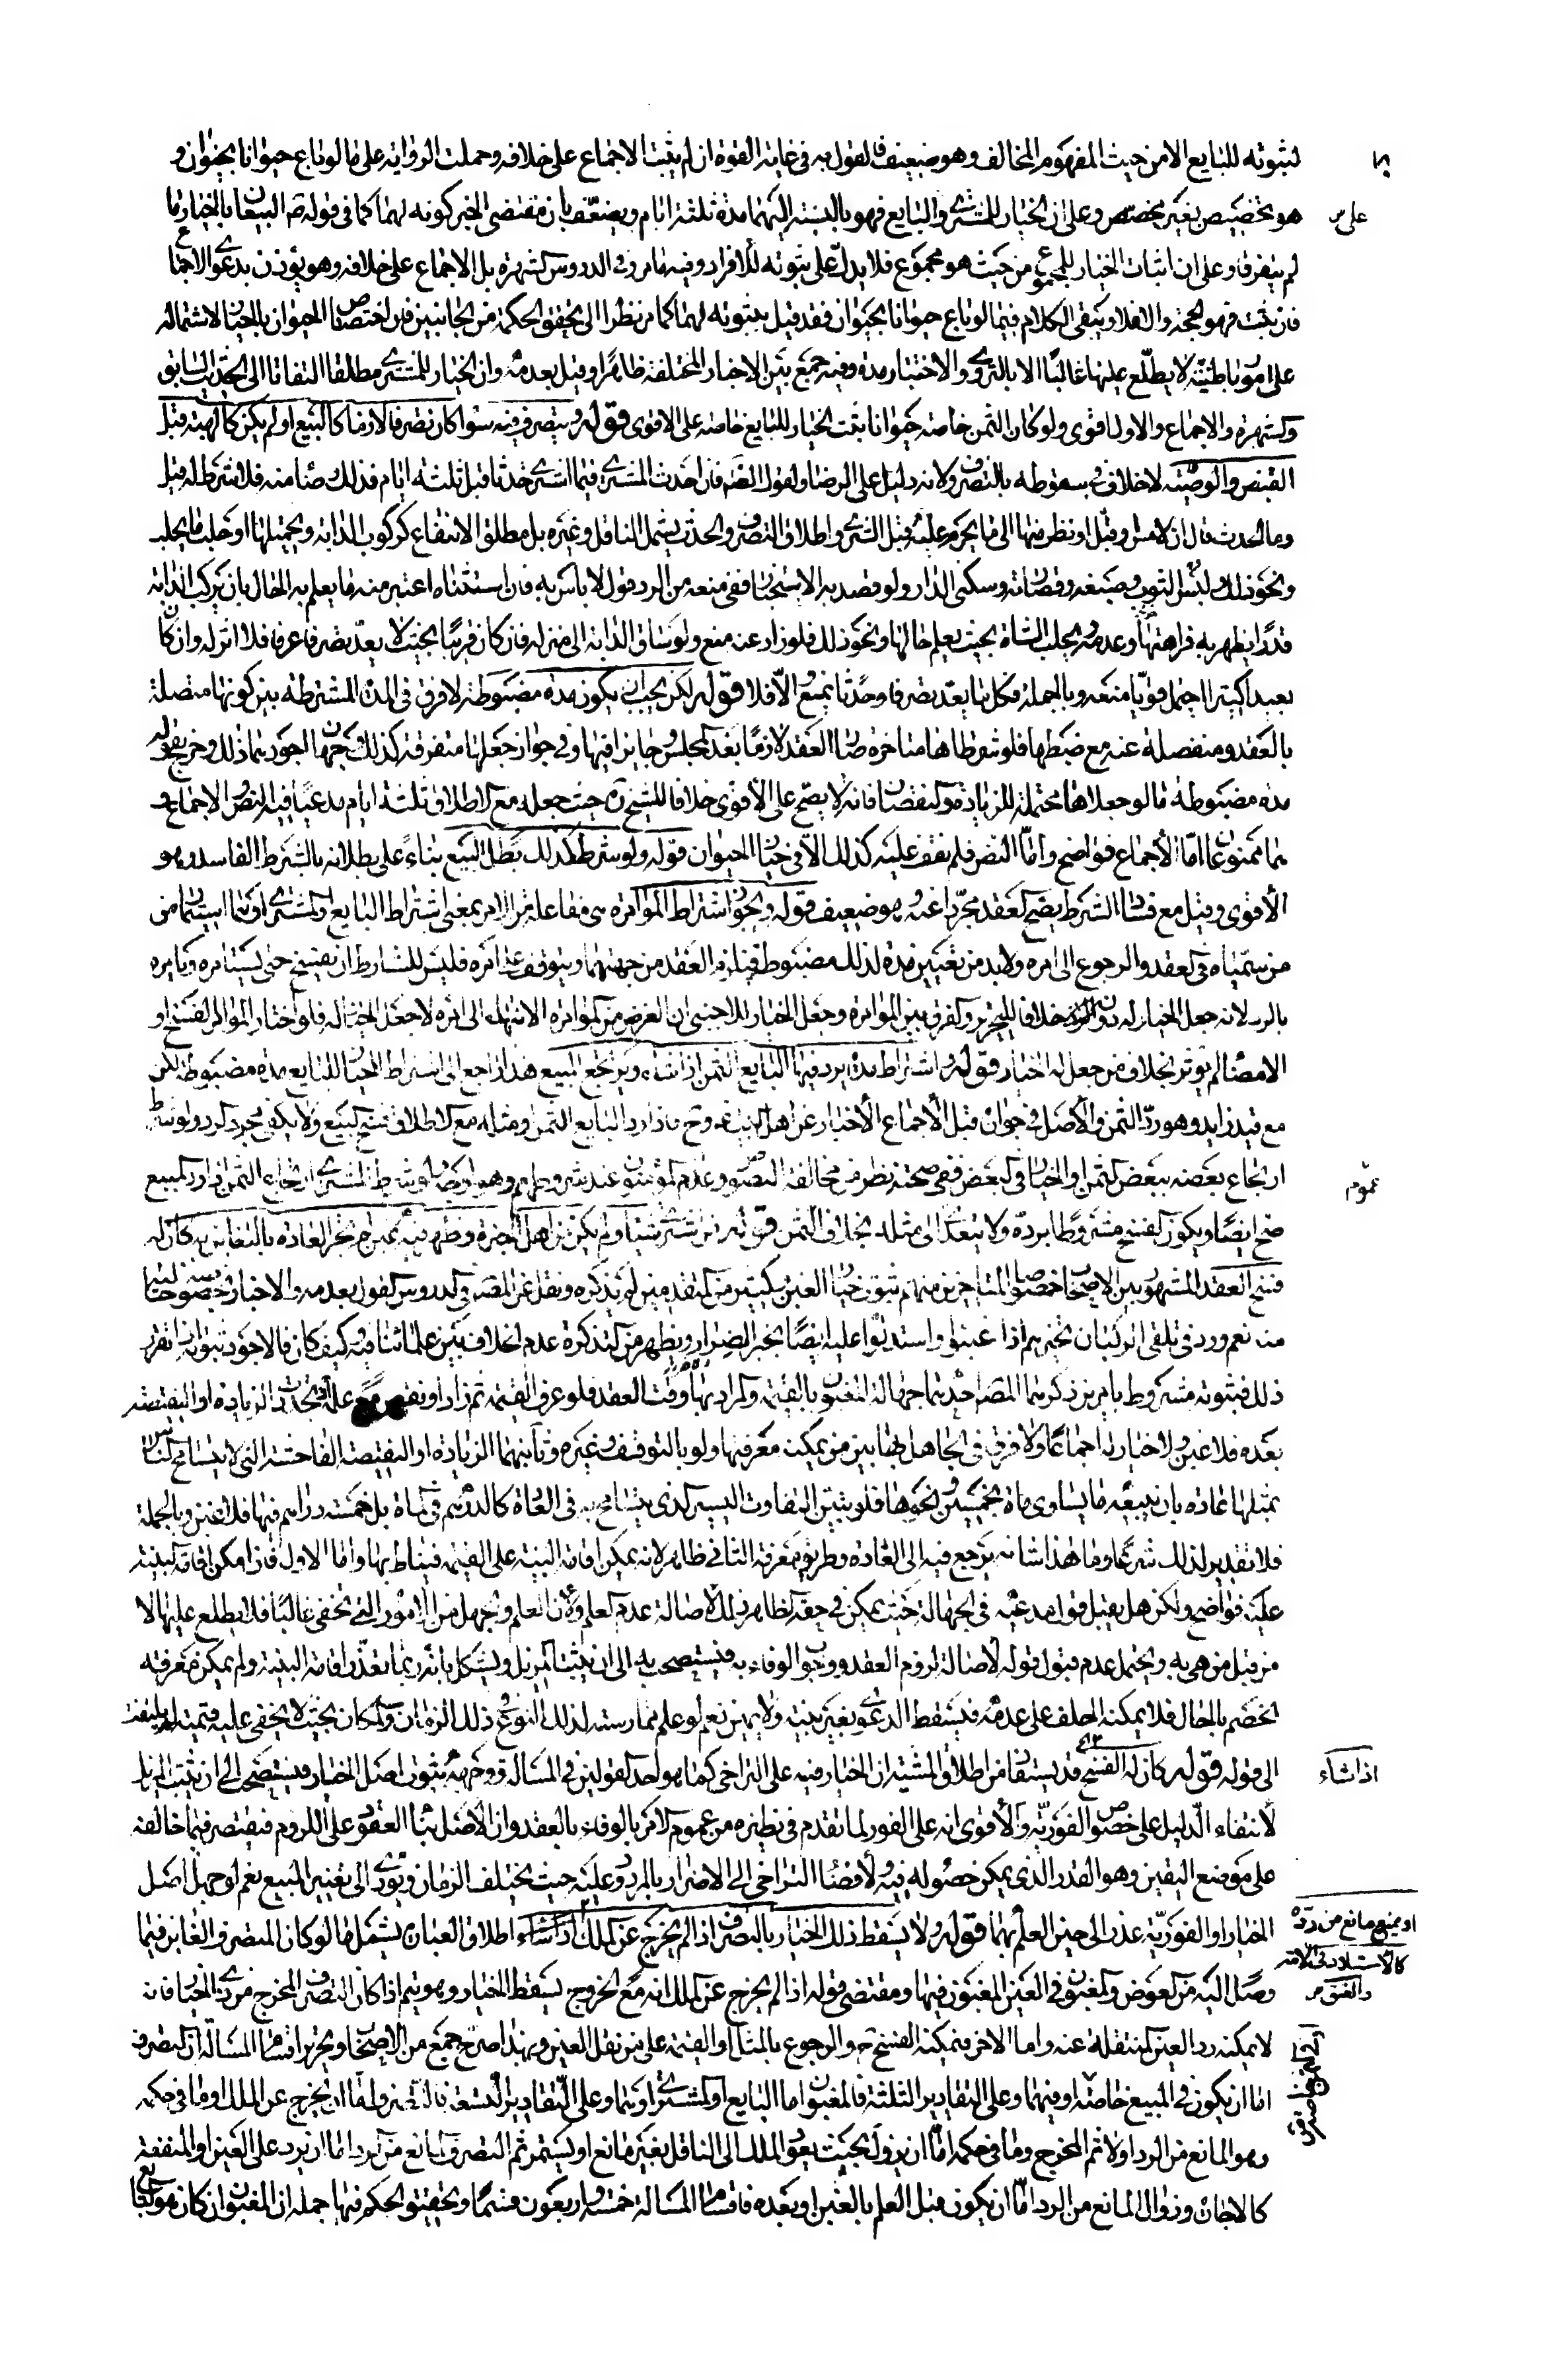 لثبوته للبايع الا من حيث المفهوم المخالف وهو ضعيف فالقول به فى غاية القوة ان لم يثبت الاجماع على خلافه وحملت الرواية على ما لو باع حيوانا بحيوان و
هو تخصيص بغير مخصص وعلى ان الخيار للمشترى والبايع فهو بالنسبة اليهما مدة ثلثة ايام ويضعف بان مقتضى الخبر كونه لهما كما فى قوله البيعان بالخيار ما
لم يفترقا وعلى ان اثبات الخيار للمجموع من حيث هو مجموع فلا يدل على ثبوته للافراد وفيه ما مر وفى الدروس لشهرته بل الاجماع على خلافه وهو يؤذن بدعوى الاجماع
فان ثبت فهو الحجة والا فلا ويبقى الكلام فيما لو باع حيوانا بحيوان فقد قيل بثبوته لهما كما مر نظرا الى تحقق الحكمة من الجانبين فان اختصاص الحيوان بالخيار لاشتماله
على امور باطنية لا يطلع عليها غالبا الا بالتروى والاختبار مدة وفيه جمع بين الاخبار المختلفة ظاهرا وقيل بعدمه وان الخيار للمشترى مطلقا التفاتا الى الحديث السابق
والشهرة والاجماع والاول اقوى ولو كان الثمن خاصة حيوانا ثبت الخيار للبايع خاصة على الاقوى قوله وبتصرفه فيه سواء كان تصرفا لازما كالبيع او لم يكن كالهبة قبل
القبض والوصية لا خلاف فى سقوطه بالتصرف ولانه دليل على الرضا ولقول الصم فان احدث المشترى فيما اشترى حدثا قبل ثلثة ايام فذلك رضا منه فلا شرط له قيل
وما الحدث قال ان لامس وقبل او نظر منها الى ما يحرم عليه قبل الشرى واطلاق التصرف والحدث يشمل الناقل وغيره بل مطلق الانتفاع كركوب الدابة وتحميلها او حلب ما يحلب
ونحو ذلك ولبس الثوب وصبغه وقصارته وسكنى الدار ولو قصد به الاستخبار ففى منعه من الرد قول لا باس به فان استثناه اعتبر منه ما يعلم به الحال بان يركب الدابة
قدرا يظهر به فراهتها وعدمه ويحلب الشاة بحيث يعلم حالها ونحو ذلك فلو زاد عنه منع ولو ساق الدابة الى منزله فان كان قريبا بحيث لا يعد تصرفا عرفا فلا اثر له وان كان
بعيدا كثيرا احتمل قويا منعه وبالجملة فكل ما يعد تصرفا وحدثا يمنع والا فلا قوله لكن يجب ان يكون مدة مضبوطة لا فرق فى المدة المشترطة بين كونها متصلة
بالعقد ومنفصلة عنه مع ضبطها فلو شرطاها متاخرة صار العقد لازما بعد المجلس وجايزا فيها وفى جواز جعلها متفرقة كذلك وجهان اجودهما ذلك وخرج بقوله
مدة مضبوطة ما لو جعلاها محتملة للزيادة والنقصان فانه لا يصح على الاقوى خلافا للشيخ ره حيث جعله مع الاطلاق ثلثة ايام مدعيا فيه النص والاجماع و
هما ممنوعان اما الاجماع فواضح واما النص فلم نقف عليه كذلك الا فى خيار الحيوان قوله ولو شرط كذلك بطل البيع بناء على بطلانه بالشرط الفاسد وهو
الاقوى وقيل مع فساد الشرط يصح العقد مجردا عنه وهو ضعيف قوله ويجوز اشتراط المؤامرة هى مفاعلة من الامر بمعنى اشتراط البايع او المشترى او هما استيمار من
من سمياه فى العقد والرجوع الى امره ولا بد من تعيين مدة لذلك مضبوطة فيلزم العقد من جهتهما ويتوقف على امره فليس للشارط ان يفسخ حتى يستامره ويامره
بالرد لانه جعل الخيار له دون خلافا للتحرير والفرق بين المؤامرة وجعل الخيار للاجنبى ان الغرض من المؤامرة الانتهاء الى امره لا جعل الخيار له فلو اختار المؤامر الفسخ او
الامضاء لم يؤثر بخلاف من جعل له الخيار قوله واشتراط مدة يرد فيها البايع الثمن اذا شاء ويرتجع المبيع هذا راجع الى اشتراط الخيار للبايع مدة مضبوطة لكن
مع قيد زايد وهو رد الثمن والاصل فى جوازه قبل الاجماع الاخبار عن اهل البيت ع وح فاذا رد البايع الثمن او مثله مع الاطلاق فسخ البيع ولا يكفى مجرد الرد ولو شرط
ارتجاع بعضه ببعض الثمن او الخيار فى البعض ففى صحته نظر من مخالفة النصوص ومن عموم المؤمنون عند شروطهم وهو اوجه ولو شرط المشترى ارتجاع الثمن اذا رد المبيع
صح ايضا ويكون الفسخ مشروطا برده ولا يتعدى الى مثله بخلاف الثمن قوله من اشترى شيئا ولم يكن من اهل الخبرة وظهر فيه غبن لم تجر العادة بالتغابن به كان له
فسخ العقد المشهور بين الاصحاب خصوصا المتاخرين منهم ثبوت خيار الغبن وكثير من المتقدمين لم يذكره ونقل عن المص فى الدروس القول بعدمه والاخبار خصوصا خالية
منه نعم ورد فى تلقى الركبان تخيرهم اذا غبنوا واستدلوا عليه ايضا بخبر الضرار ويظهر من التذكرة عدم الخلاف بين علمائنا فيه وكيف كان فالاجود ثبوته اذا تقرر
ذلك فثبوته مشروط بامرين ذكرهما المصم احدهما جهالة المغبون بالقيمة والمراد بها وقت العقد فلو عرف القيمة ثم زاد او نقص مع علمه او تجددت الزيادة او النقيصة
بعده فلا غبن ولا خيار له اجماعا ولا فرق فى الجاهل بها بين من يمكنه معرفتها ولو بالتوقف وغيره وثانيهما الزيادة او النقيصة الفاحشة التى لا يتسامح الناس
بمثلها عادة بان يبيعه ما يساوى ماة بخمسين ونحوها فلو تبين التفاوت اليسير الذى يتسامح به فى العادة كالدرهم فى الماة بل خمسة دراهم فيها فلا غبن وبالجملة
فلا تقدير لذلك شرعا وما هذا شانه يرجع فيه الى العادة وطريق معرفة الثانى ظاهر لانه يمكن اقامة البينة على القيمة فيناط بها واما الاول فان امكن اقامة البينة
عليه فواضح ولكن هل يقبل قول مدعيه فى الجهالة حيث يمكن فى حقه الظاهر ذلك لاصالة عدم العلم ولان العلم والجهل من الامور التى تخفى غالبا فلا يطلع عليها الا
من قبل من هى به ويحتمل عدم قبول قوله لاصالة لزوم العقد ووجوب الوفاء به فيستصحب الى ان يثبت المزيل ويشكل بانه ربما تعذر اقامة البينة ولم يمكن معرفته
الخصم بالحال فلا يمكنه الحلف على عدمه فيسقط الدعوى بغير بينة ولا يمين نعم لو علم ممارسته لذلك النوع فى ذلك الزمان والمكان بحيث لا يخفى عليه قيمته لم يلتفت
الى قوله قوله كان له الفسخ قد يستفاد من اطلاق المشية ان الخيار فيه على التراخى كما هو احد القولين فى المسالة ووجهه ثبوت اصل الخيار فيستصحب الى ان يثبت المزيل
لانتفاء الدليل على خصوص الفورية والاقوى انه على الفور لما تقدم فى نظيره من عموم الامر بالوفاء بالعقد وان الاصل بناء العقود على اللزوم فيقتصر فيما خالفه
على موضع اليقين وهو القدر الذى يمكن حصوله فيه ولافضاء التراخى الى الاضرار بالمردود عليه حيث يختلف الزمان ويؤدى الى تغيير المبيع نعم لو جهل اصل
الخيار او الفورية عذر الى حين العلم بهما قوله ولا يسقط ذلك الخيار بالتصرف اذا لم يخرج عن الملك اطلاق العبارة يشمل ما لو كان المتصرف الغابن فيما
وصل اليه من العوض والمغبون فى العين المغبون فيها ومقتضى قوله اذا لم يخرج عن الملك انه مع الخروج يسقط الخيار وهو يتم اذا كان التصرف المخرج من ذى الخيار فانه
لا يمكنه رد العين المنتقلة عنه واما الاخر فيمكنه الفسخ ح والرجوع بالمثل او القيمة على من نقل العين وبهذا صرح جمع من الاصحاب وتحرير اقسام المسالة ان التصرف
اما ان يكون فى المبيع خاصة او فيهما وعلى التقادير الثلثة فالمغبون اما البايع او المشترى او هما وعلى التقادير التسعة اما ان يخرج عن الملك او ما فى حكمه
وهو المانع من الرد اولا ثم المخرج وما فى حكمه اما ان يزول بحيث يعود الملك الى الناقل بغير مانع او يستمر ثم التصرف المانع من الرد اما ان يرد على العين او المنفعة
كالاجارة وزوال المانع من الرد اما ان يكون قبل العلم بالغبن او بعده فاقسام المسالة خمسة واربعون قسما وتحقيق الحكم فيها جملة ان المغبون ان كان هو البايع
على
عموم
اذا شاء
او يمنع مانع من رده
كالاستيلاد فى الامة
والعتق